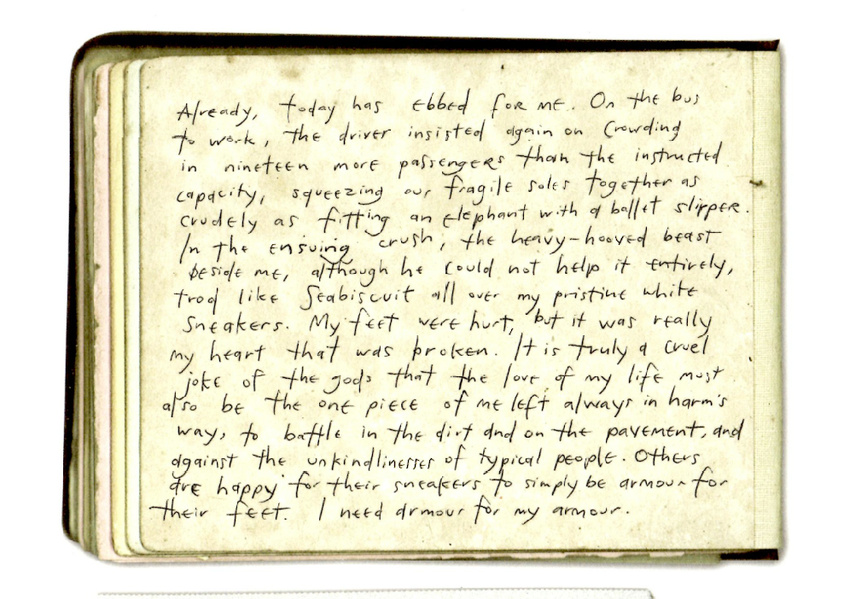 Already, today has ebbed for me. On the bus
to work, the driver insisted again on crowding
in nineteen more passengers than the instructed
capacity, squeezing our fragile soles together as
crudely as fitting an elephant with a ballet slipper.
In the ensuing crush, the heavy-hooved beast
beside me, although he could not help it entirely,
trod like Seabiscuit all over my pristine white
sneakers. My feet were hurt, but it was really
my heart that was broken. It is truly a cruel
joke of the gods that the love of my life must
also be the one piece of me left always in harm's
way, to battle in the dirt and on the pavement, and
against the unkindlinesses of typical people. Others
are happy for their sneakers to simply be armour for
their feet. I need armour for my armour.